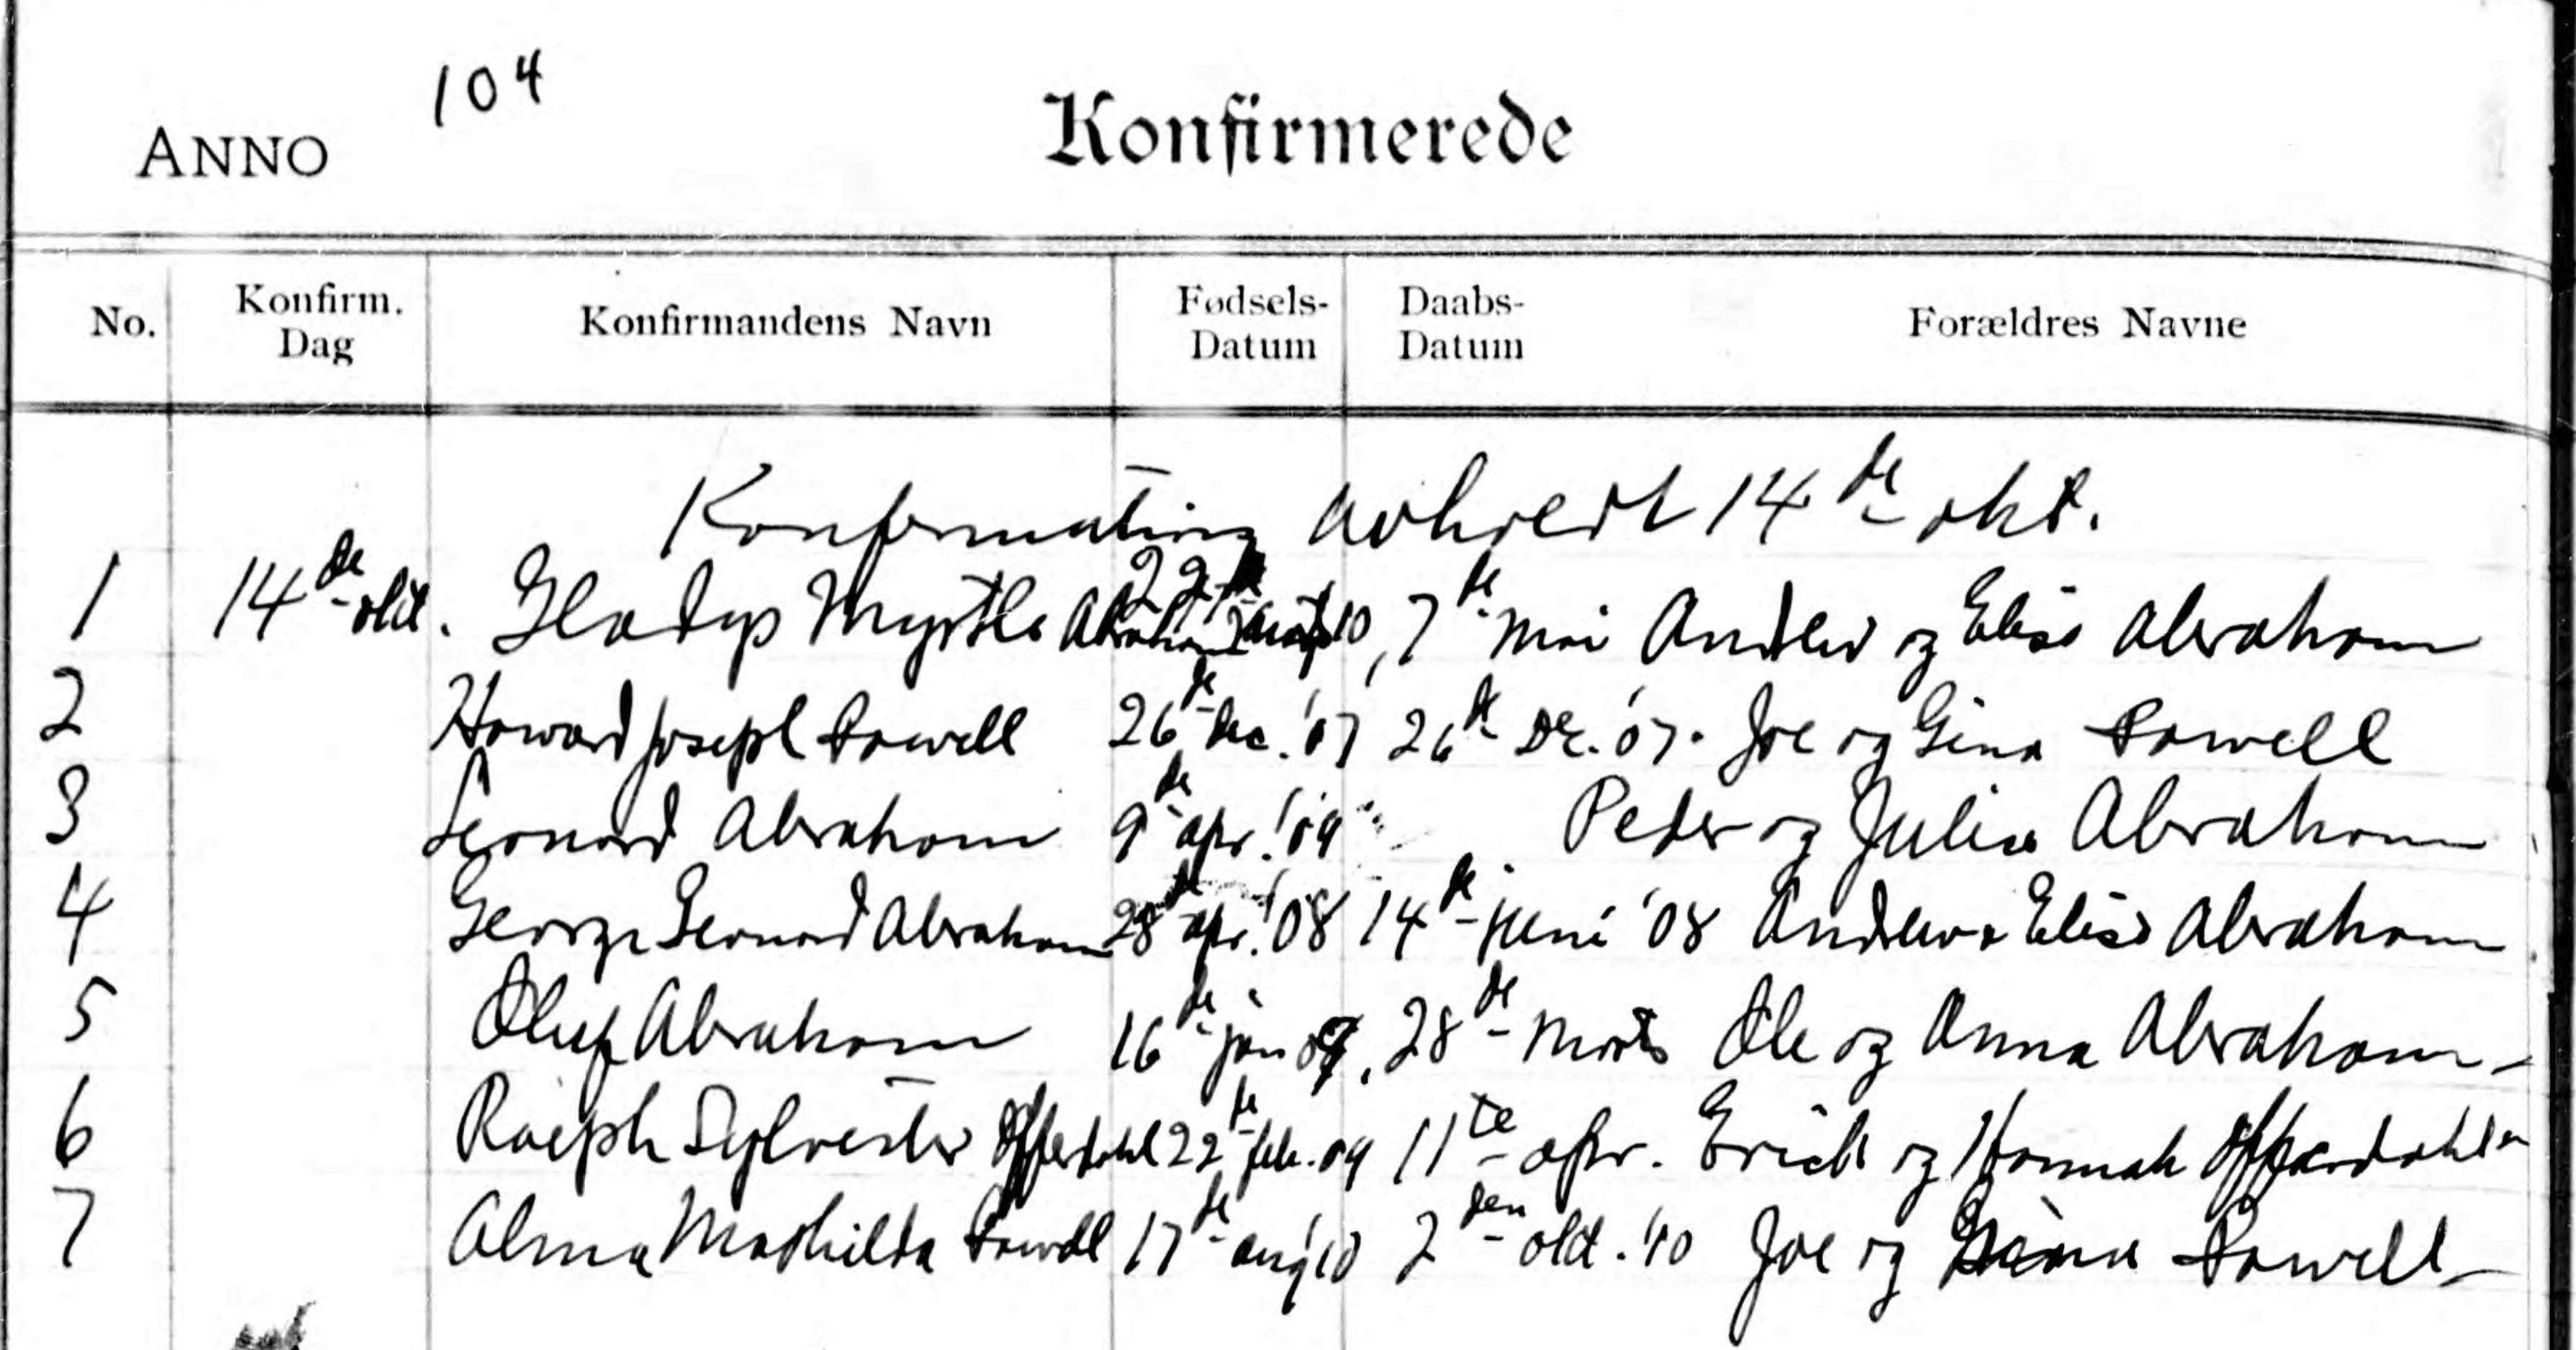 104
ANNO
Konfirmerede
No. Konfirm. Dag Konfirmandens Navn Fødsels-Datum Daabs-Datum Forældres Navne
Konfirmation avholdt 14de okt.
1 14de okt. Gladys Myrtle Abraham 22 10, 7de mai Andrew og Elise Abraham
2 Howard Joseph Sowell 26de dec. '07 26de De. '07. Joe og Gina Sowell
3 Leonard Abraham 9de apr. '09 Peder og Julia Abraham
4 George Leonard Abraham 28de apr. '08 14de juni '08 Andrew o Elise Abraham
5 Oluf Abraham 16de jan 09, 28de Marts Ole og Anna Abraham
6 Ralph Sylvester Offerdahl 22de feb. 09 11te apr. Erick og Hannah Offerdahl
7 Alma Mathilda Sowell 17de aug '10 2den okt. '10 Joe og Gina Sowell